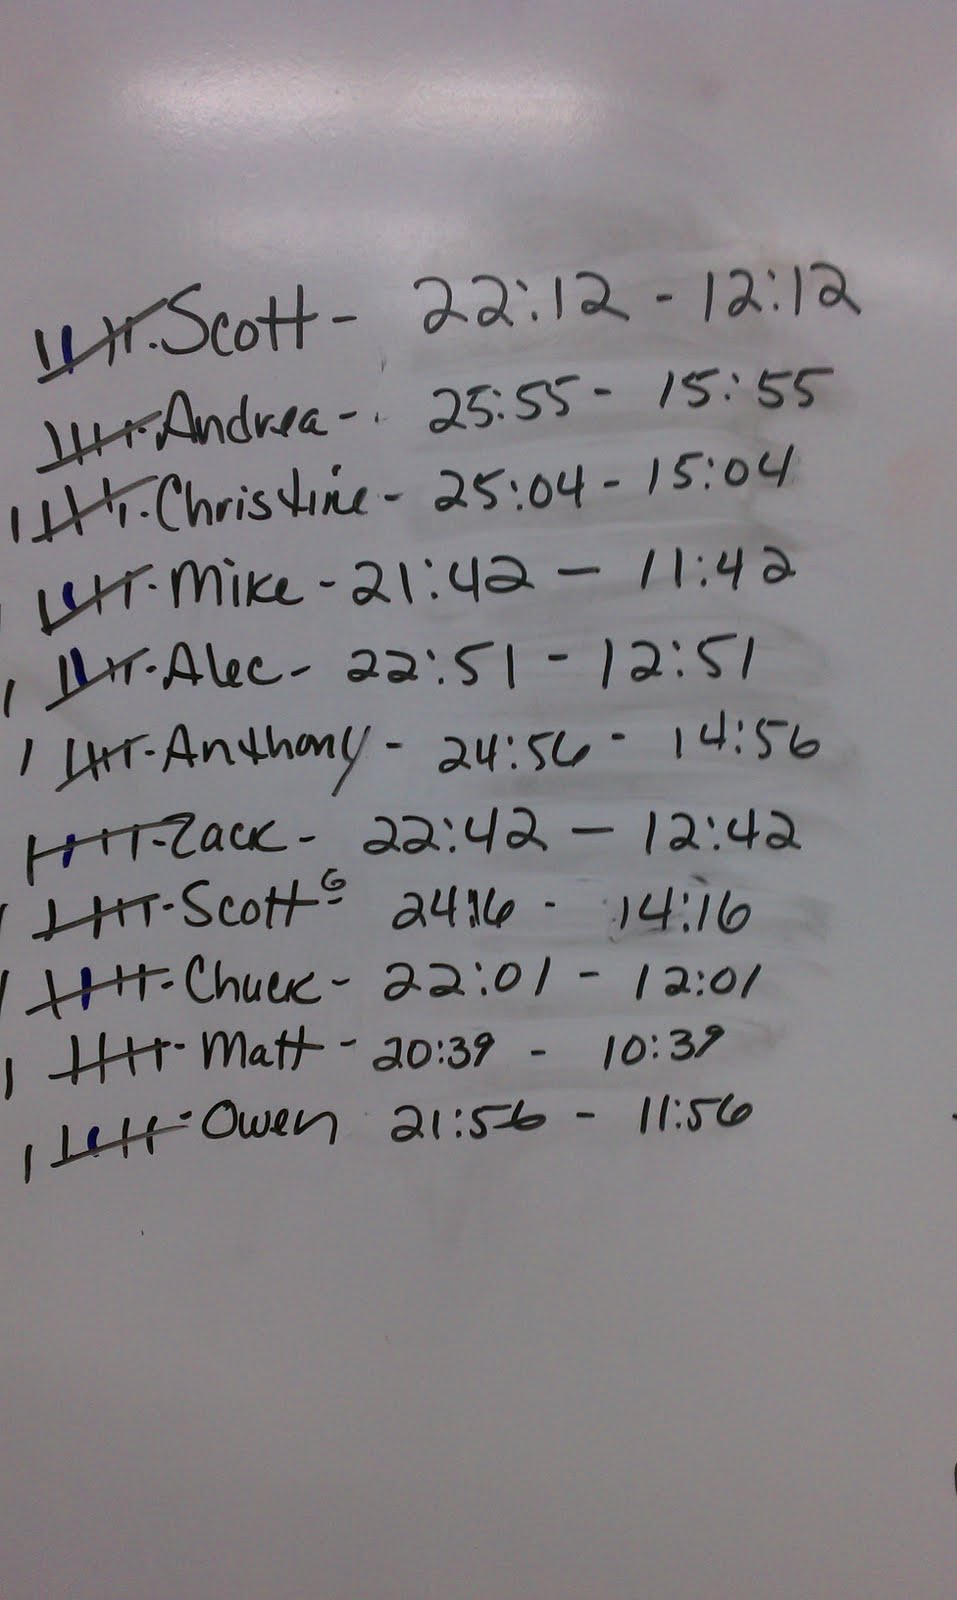 Scott - 22:12 - 12:12
Andrea - 25:55 - 15:55
Christine - 25:04 - 15:04
Mike - 21:42 - 11:42
Alec - 22:51 - 12:51
Anthony - 24:56 - 14:56
Zack - 22:42 - 12:42
Scott G - 24:16 - 14:16
Chuck - 22:01 - 12:01
Matt - 20:39 - 10:39
Owen 21:56 - 11:56